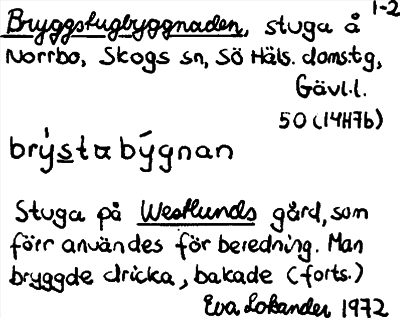 1-2
Bryggstugbyggnaden, stuga å
Norrbo, Skogs sn, Sö Häls. domstg,
Gävl.l.
50 (14H7b)
brýsta býgnan
Stuga på Westlunds gård, som
förr användes för beredning. Man
bryggde dricka, bakade (forts.)
Eva Lokander 1972